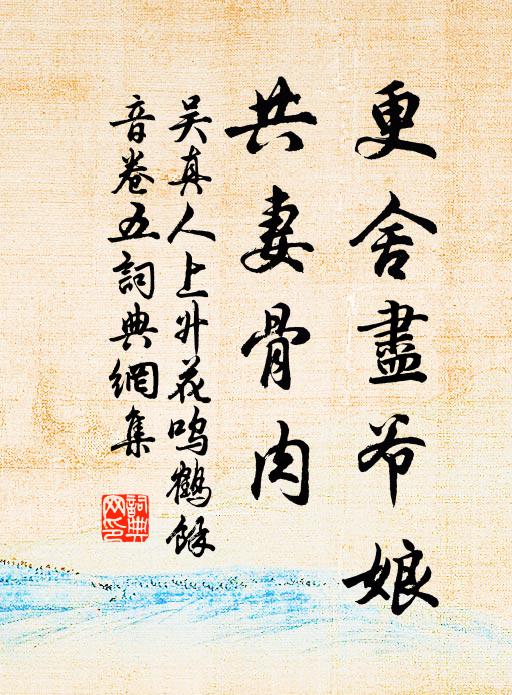 更舍盡爷娘
共妻骨肉
吴真人上升花鸣鶴餘
音卷五詞典網集
詞典
网印